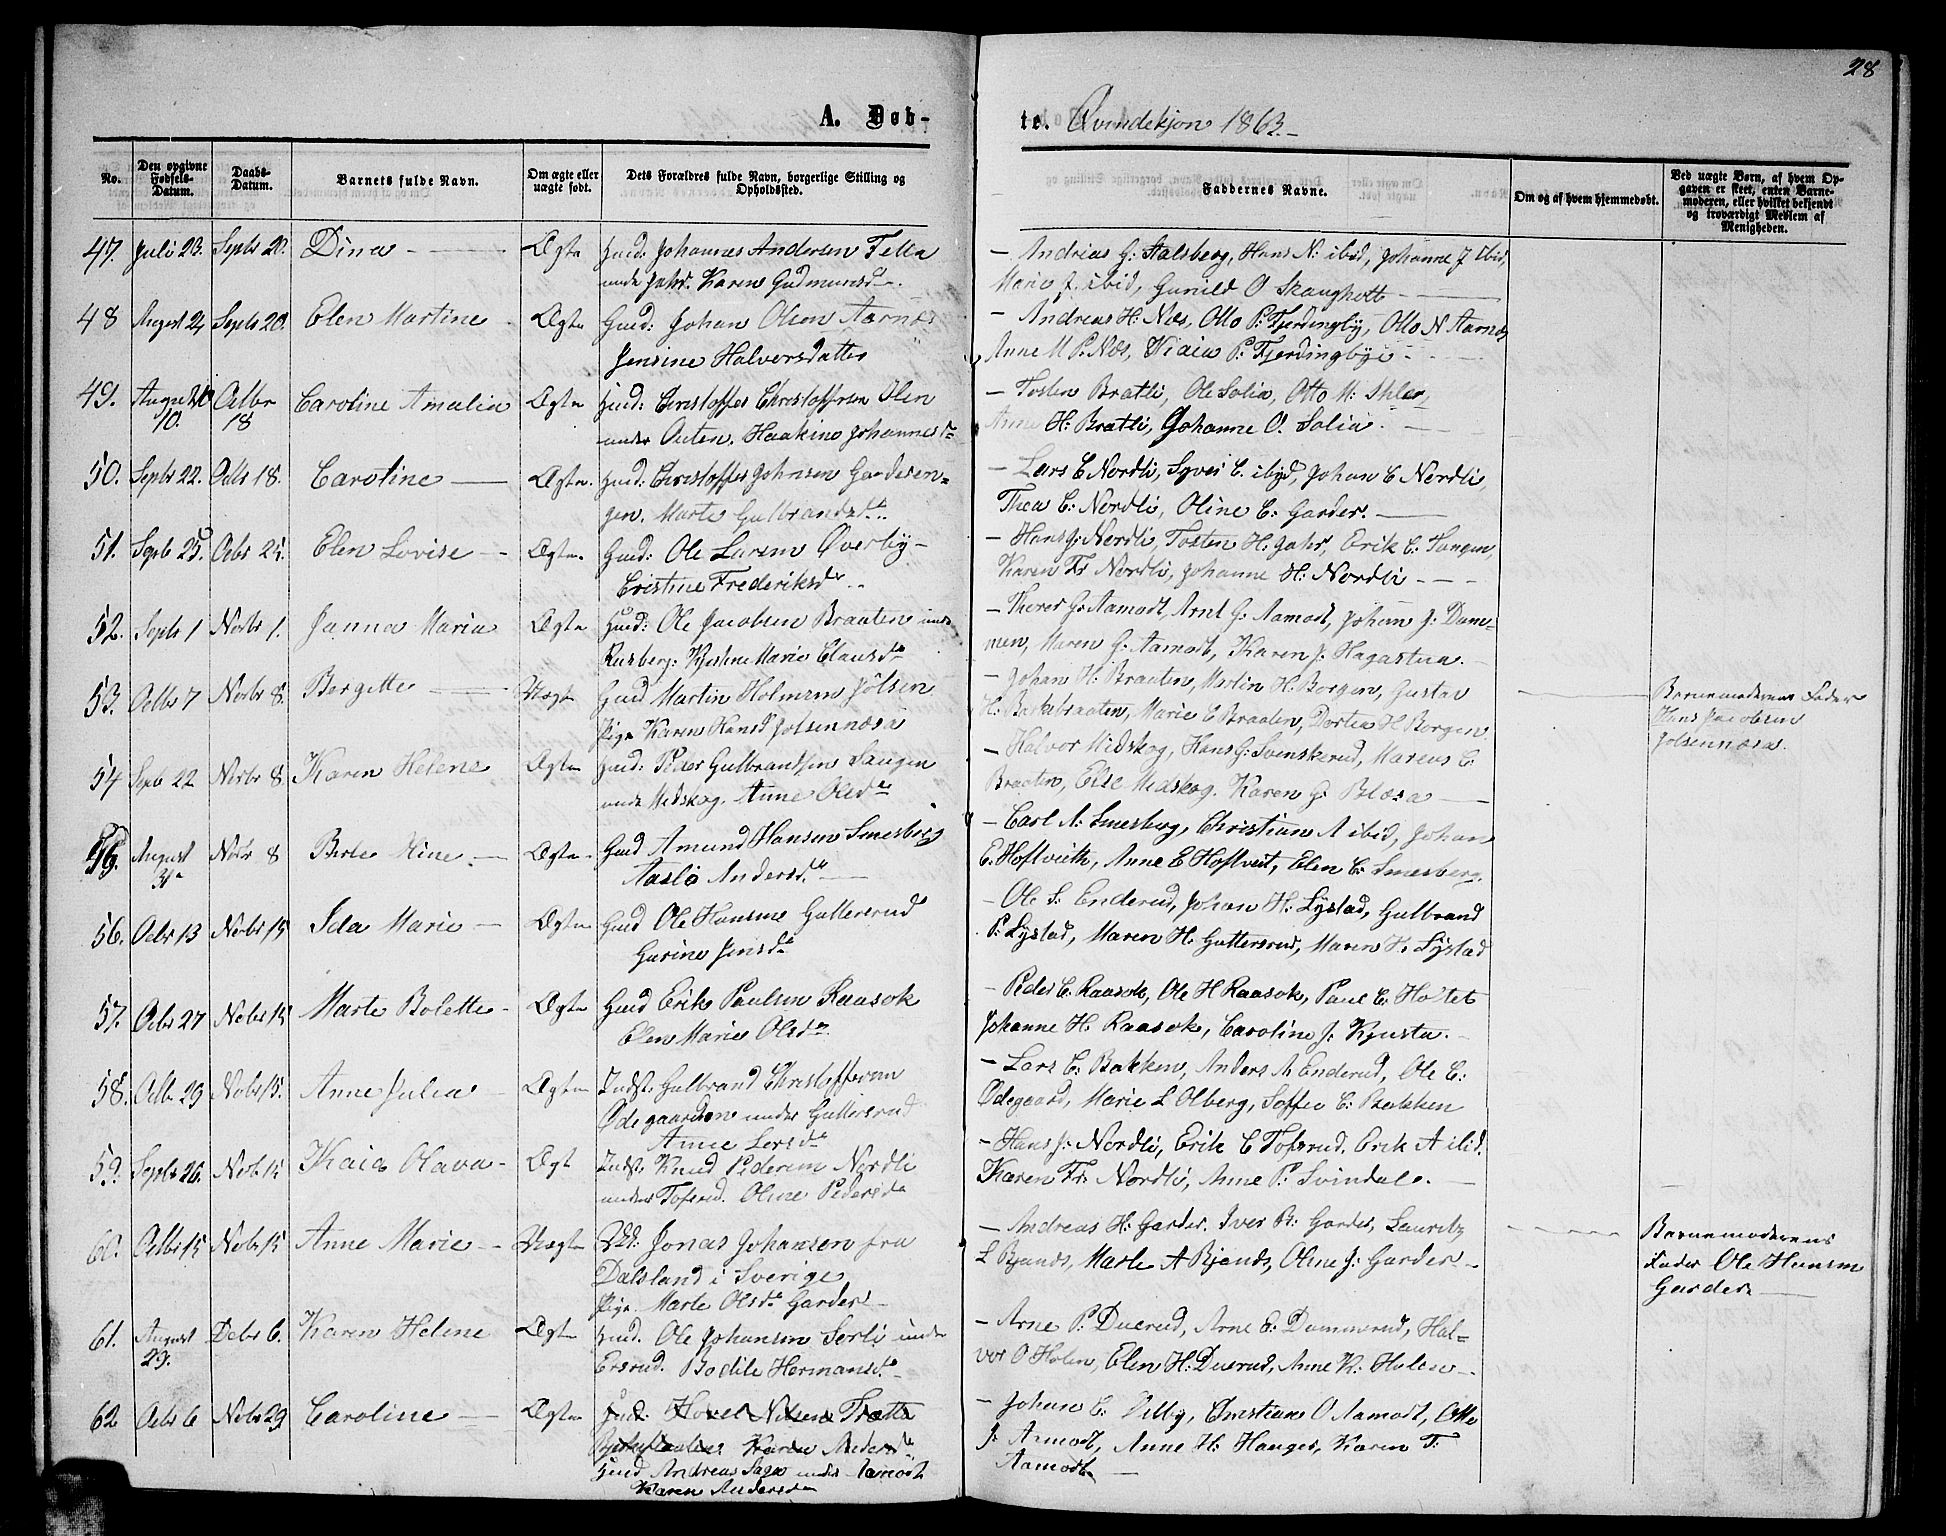 28
A. Døb-
te. Qvindekjøn 1863.
No.
Den opgivne Fødsels-Datum.
Daabs-Datum.
Barnets fulde Navn.
Om ægte eller uægte født.
Dets Forældres fulde Navn, borgerlige Stilling og Opholdssted.
Faddernes Navne.
Om og af hvem hjemmedøbt.
Ved uægte Børn, af hvem Opgaven er skeet, enten Barnemoderen, eller hvilket bekjendt og troværdigt Medlem af Menigheden.
47. Juli 23. Septr 20. Dina Ægte Huusd: Johannes Andersen Fella
under Jahr. Karen Gudmundsd.
- Andreas G: Aalsberg, Hans N: ibid, Johanne J ibid,
Marie J. ibid, Gunild O Skaughott
48 August 2 Septr 20. Elen Martine Ægte Gaard: Johan Olsen Aarnæs
Jensine Halvorsdatter
- Andreas H: Næs, Otto P: Fjerdingby, Otto N Aarnæs
Anne M P: Næs, Kiaia P: Fjerdingbye
49. August 10. Octbr 18 Caroline Amalia Ægte Huusd: Christoffer Christoffersen Olen
under Outen. Haakine Johannesd
- Tosten Bratli, Ole Solia, Otto M:
Anne H: Bratli, Johanne O. Solia.
50. Septr 22. Octr 18. Caroline Ægte. Huusd: Christoffer Johnsen Garderen-
gen. Marte Gulbrandsd.
- Lars C Nordli, Syver C. ibid, Johan C Nordli,
Thea C: Nordli, Oline C: Garder.
51. Septr 25. Octbr 25. Elen Lovise Ægte. Gaard: Ole Larsen Øverby
Cristine Frederiksdr
- Hans J: Nordli, Tosten H: Jahr, Erik C: Tangen,
Karen Fr Nordli, Johanne H: Nordli
52. Septr 1 Novbr 1. Janna Maria Ægte Huusd: Ole Jacobsen Braaten under
Rusberg: Kjestine Marie Clausd
- Thorer G: Aamodt, Arnt G: Aamodt, Johan J: Dam-
men, Maren G: Aamodt, Karen J: Hagastua.
53. Octbr 7 Novbr 8. Bergitte Uægte Gaard Martin Holmsen Jölsen
Pige Karen Hansd Jolsennæsa
- Johan H: Braaten, Martin H: Borgen, Gustav
H: Bakebraaten, Marie C Braaten, Dortea H Borgen
Barnemoderens Fader
Hans Jacobsen
Jolsennæsa.
54 Septr 22 Novbr 8. Karen Helene Ægte Huusd: Peder Gulbrandsen Saugen
under Midskog. Anne Olsd
- Halvor Midskog, Hans G: Svenskerud, Marcus C.
Braaten, Else Midskog. Karen G: Blæsa
55. August 31 Novbr 8 Berte Mine. Ægte. Gaard Amund Hansen Smesberg
Aaslö Andersd.
- Carl A: Smesberg, Christian A ibid, Johan
E. Hoftvieth, Anne E Hoftveit, Elen C: Smesberg.
56. Octbr 13 Novbr 15 Ida Marie Ægte Gaard Ole Hansen Guttersrud
Gurine Jensd
- Ole S: Enderud, Johan H: Lystad, Gulbrand
P: Lystad, Maren H: Guttersrud, Maren H: Lystad
57. Octbr 27 Novbr 15 Marte Bolette Ægte Gaard Erik Paulsen Raasok
Elen Marie Olsd.
- Peder C. Raasok, Ole H Raasok, Paul C. Hotet
Johanne H. Raasok, Caroline J: Kjusta.
58. Octbr 29 Novbr 15. Anne Julia Ægte Indst. Gulbrand Christoffersen
Ødegaarden under Guttersrud
Anne Larsd
- Lars C: Bakken, Anders A Enderud, Ole C:
Ødegaard, Marie L Olberg, Soffie C: Bakken
59. Septr 26. Novbr 15 Kaia Olava Ægt Indst: Knud Pedersen Nordli
under Tofsrud. Oline Pedersd
- Hans J: Nordli, Erik C Tofsrud. Erik A ibid.
Karen Fr: Nordli, Anne P: Svindal.
60. Octbr 15 Novbr 15 Anne Marie Uægte Ukd: Jonas Johansen fra
Dalsland i Sverige
Pige Marte Olsd. Garder
- Andreas H: Garder. Iver B: Garder, Lauritz
L Bjands, Marte A Bjands, Oline J: Garder
Barnemoderens
Fader Ole Hansen
Garder
61. August 29. Debr 6. Karen Helene Ægte Huusd. Ole Johansen Sorli under
Ersrud. Bodile Hermansd.
- Arne P. Duerud, Arne E: Dammerud, Hal-
vor O Holen, Elen H: Duerud, Anne K: Holen
62 Octbr 6 Novbr 29 Caroline Ægte Huusd: Hovel Nilsen Tratte
Karen Andersd
Huusd Andreas Saga under Aamodt
Karen Andersd
- Johan C. Dilby, Christian O Aamodt, Otto
J: Aamodt, Anne H: Hanger, Karen T:
Aamodt